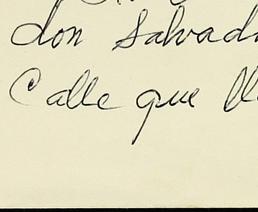 don Salvad
Calle que